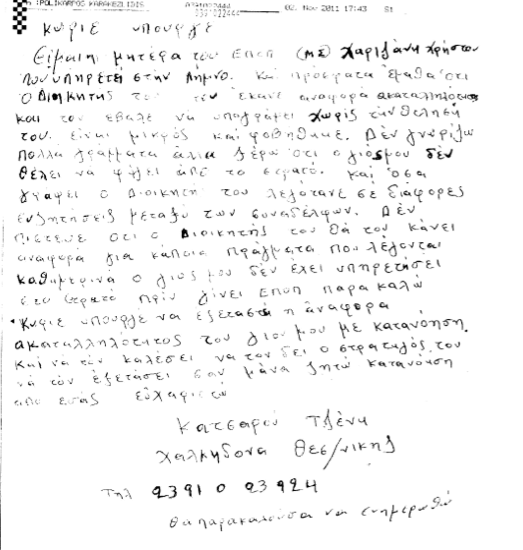 :POLIKARPOS KARAKEZLIDIS 02. Nov 2011 17:43 S1
Κύριε υπουργέ
Είμαι η μητέρα του Εποπ (ΜΣ) Χαριζάνη Χρήστου
που υπηρετεί στην Λήμνο. Και πρόσφατα έμαθα ότι
ο Διοικητής του τον έκανε αναφορά ακαταλληλότητος
και τον έβαλε να υπογράψει χωρίς την θέληση
του. είναι μικρός και φοβήθηκε. Δεν γνωρίζω
πολλά γράμματα αλλα ξέρω ότι ο γιός μου δεν
θέλει να φύγει από το στρατό. και όσα
γραφει ο Διοικητή του λεγότανε σε διάφορες
συζητήσεις μεταξύ των συναδέλφων. Δεν
πίστευε οτι ο Διοικητής του θα τον κάνει
αναφορα για κάποια πράγματα που λέγονται
καθημερινά ο γιος μου δεν έχει υπηρετήσει
στο στρατο πριν γίνει εποπ παρακαλώ
Κυριε υπουργε να εξεταστή η αναφορα
ακαταλληλότητος του γιου μου με κατανόηση
και να τον καλέσει να τον δει ο στρατηγός του
να τον εξετάσει σαν μάνα ζητώ κατανόηση
απο εσάς ευχαριστώ
Κατσαρού Τζένη
Χαλκηδόνα Θεσ/νικης
Τηλ 23910 23924
θα παρακαλούσα να ενημερωθώ